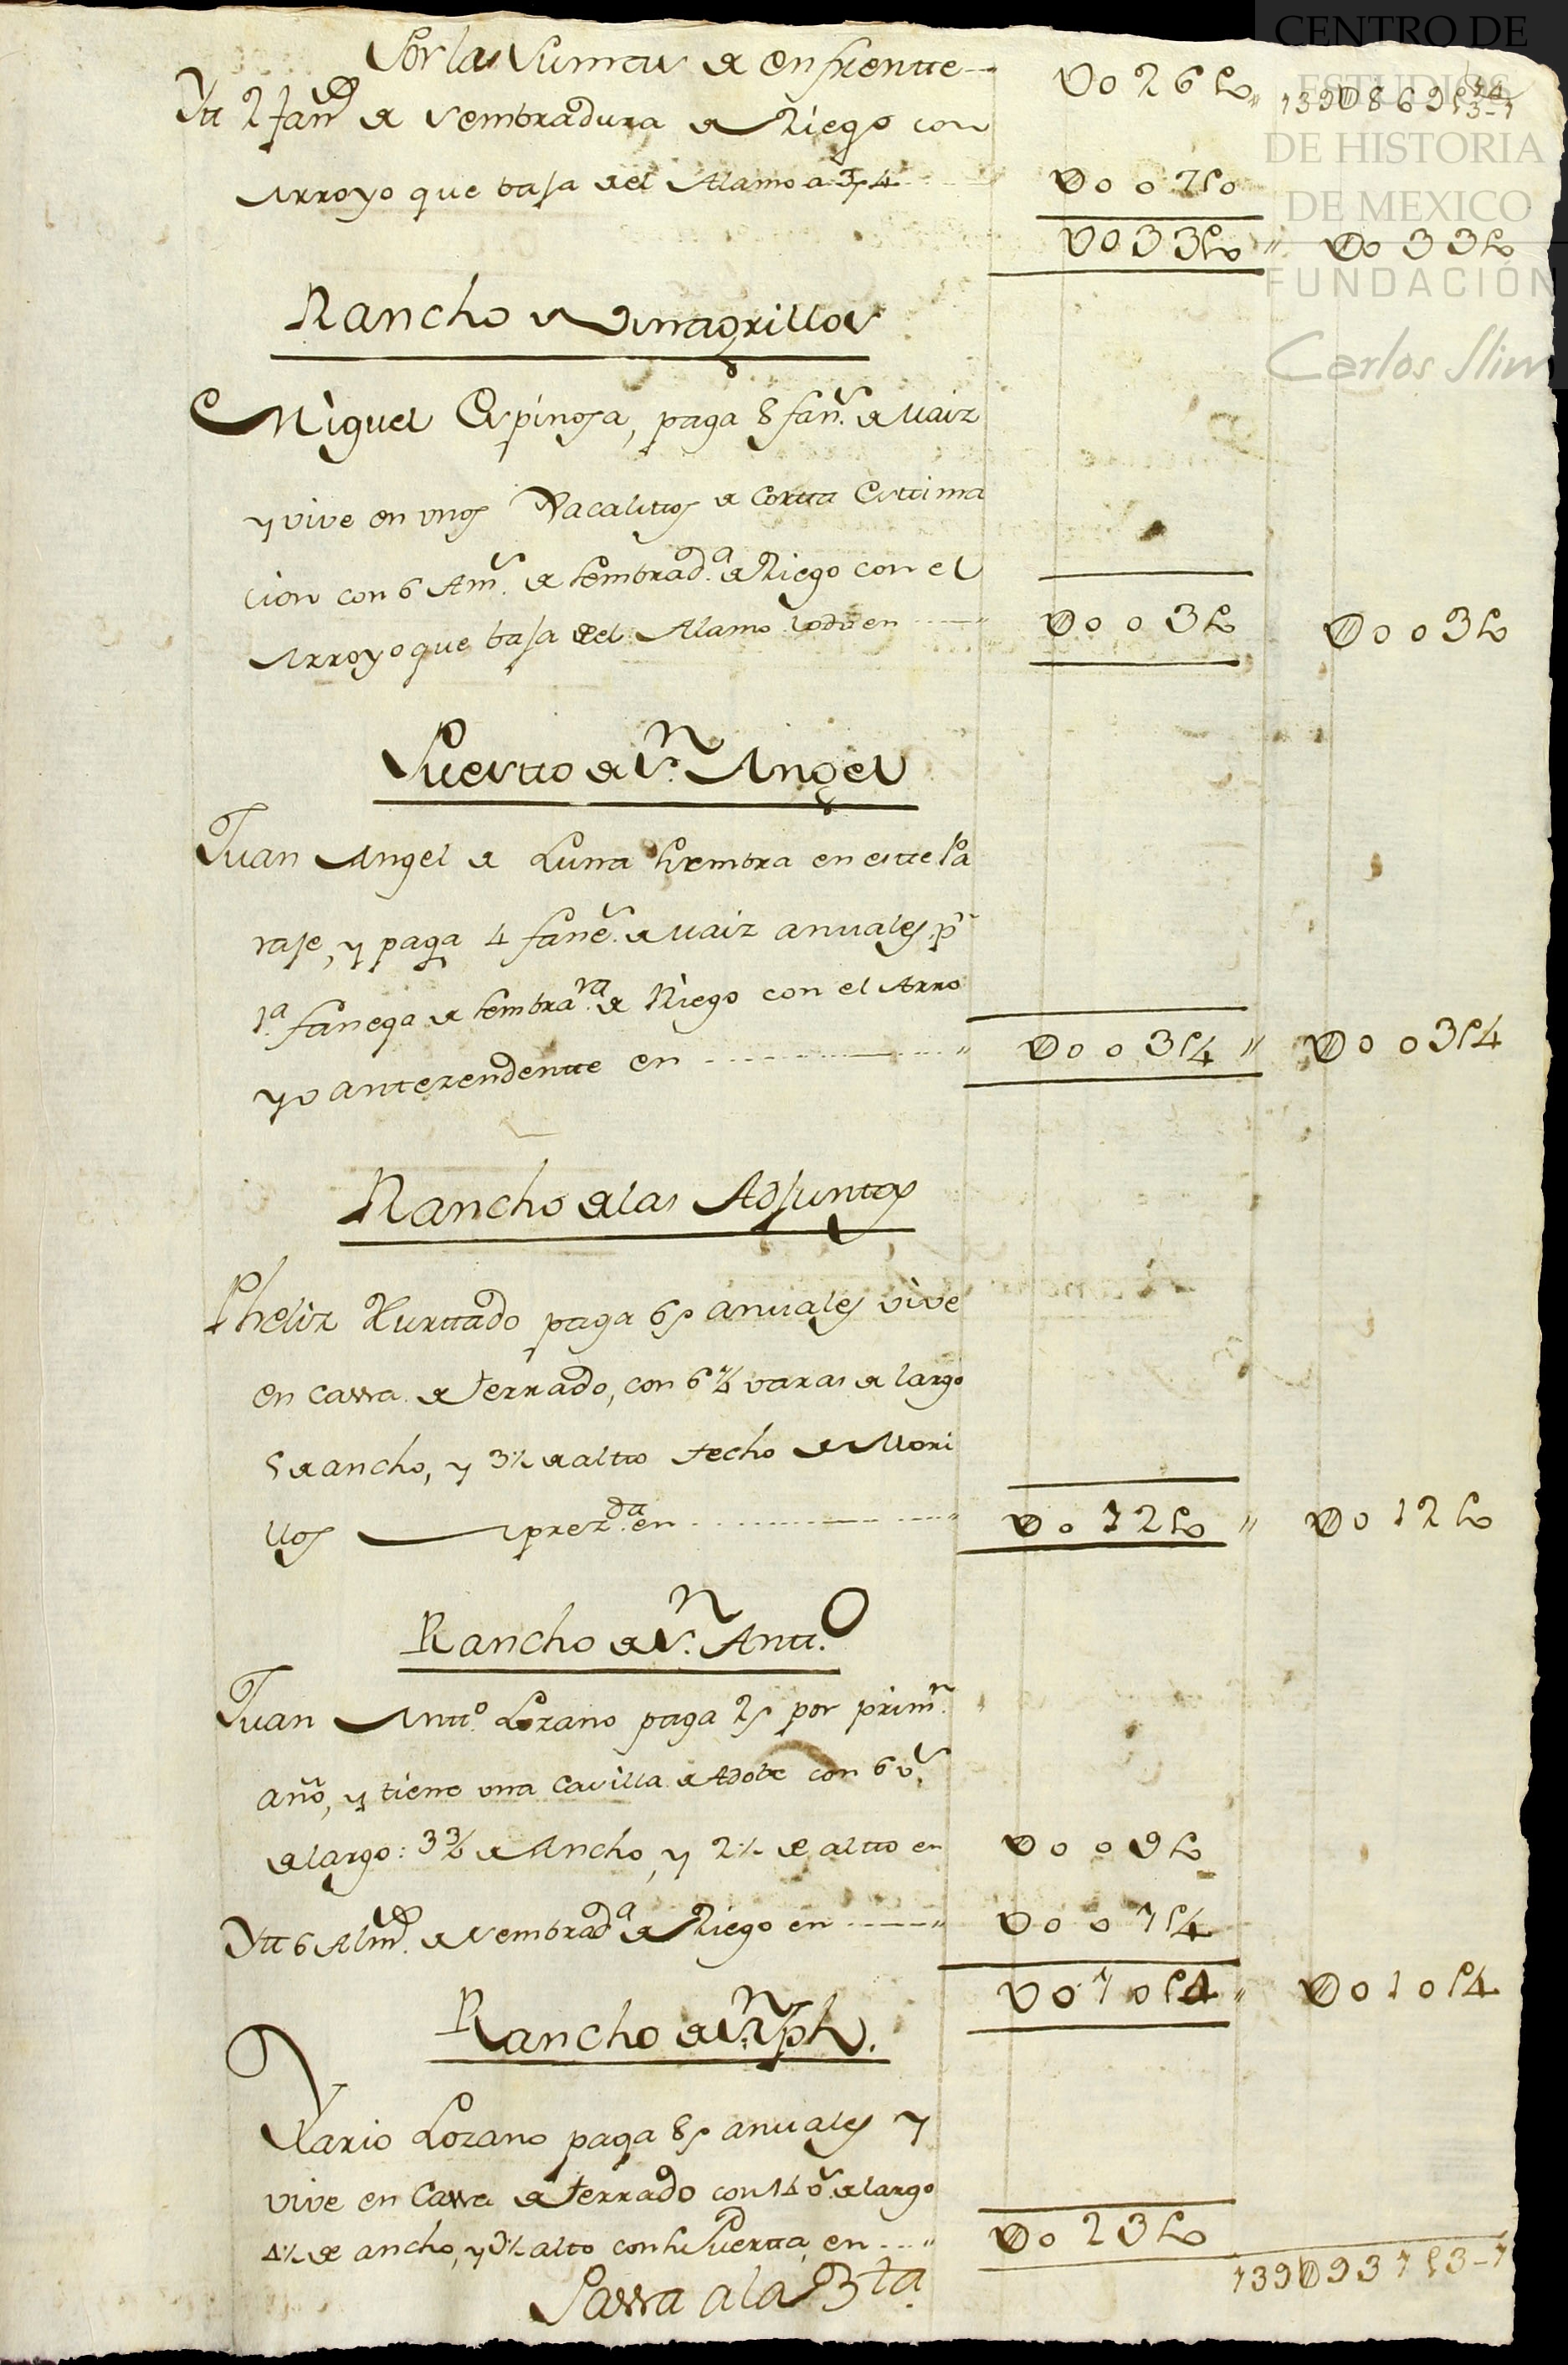 Por las Sumas de enfrentte U026 ps0 139U869ps3-1
Ytt 2 fan.s de Sembradura de Riego con
Arroyo que baja del Alamo a 3 p 4 U007ps0
U033ps0 U033ps0
Rancho de Vinagrillos
Miguel Espinosa, paga 8 fan.s de Maiz
y vive en unos Xacalittos de Cortta Esttima
cion con 6 Am.s de Sembrad.a de Riego con el
Arroyo que baja del Alamo todo en U003ps0 U003ps0
Puertto de S.n Angel
Juan Angel de Luna Siembra en estte Pa
raje, y paga 4 fane.s de Maiz anuales p.r
1.a fanega de Sembra.ra de Riego con el Arro
yo antezendentte en U003ps4 U003ps4
Rancho de las Adjunttas
Phelix Hurttado paga 6 ps anuales vive
en cassa de terrado, con 6 1/2 varas de largo
5 de ancho, y 3 1/2 de altto techo de Mori
llos aprez.da en U012ps0 U012ps0
Rancho de S.n Antt.o
Juan Antt.o Lozano paga 2 ps por prim.r
año, y tiene una Casilla de Adobe con 6 v.s
de largo: 3 3/4 de Ancho, y 2 1/2 de altto en U009ps0
Ytt 6 Alm.s de Sembrad.a de Riego en U001ps4
U010ps4 U010ps4
Rancho de S.n Jph.
Ylario Lozano paga 8 ps anuales y
vive en Cassa de terrado con 14 v.s de largo
4 1/2 de ancho, y 3 1/2 alto con su Puertta, en U023ps0
139U931ps3-1
Passa a la 3ta.
CENTRO DE
ESTUDIOS
DE HISTORIA
DE MEXICO
FUNDACIÓN
Carlos Slim